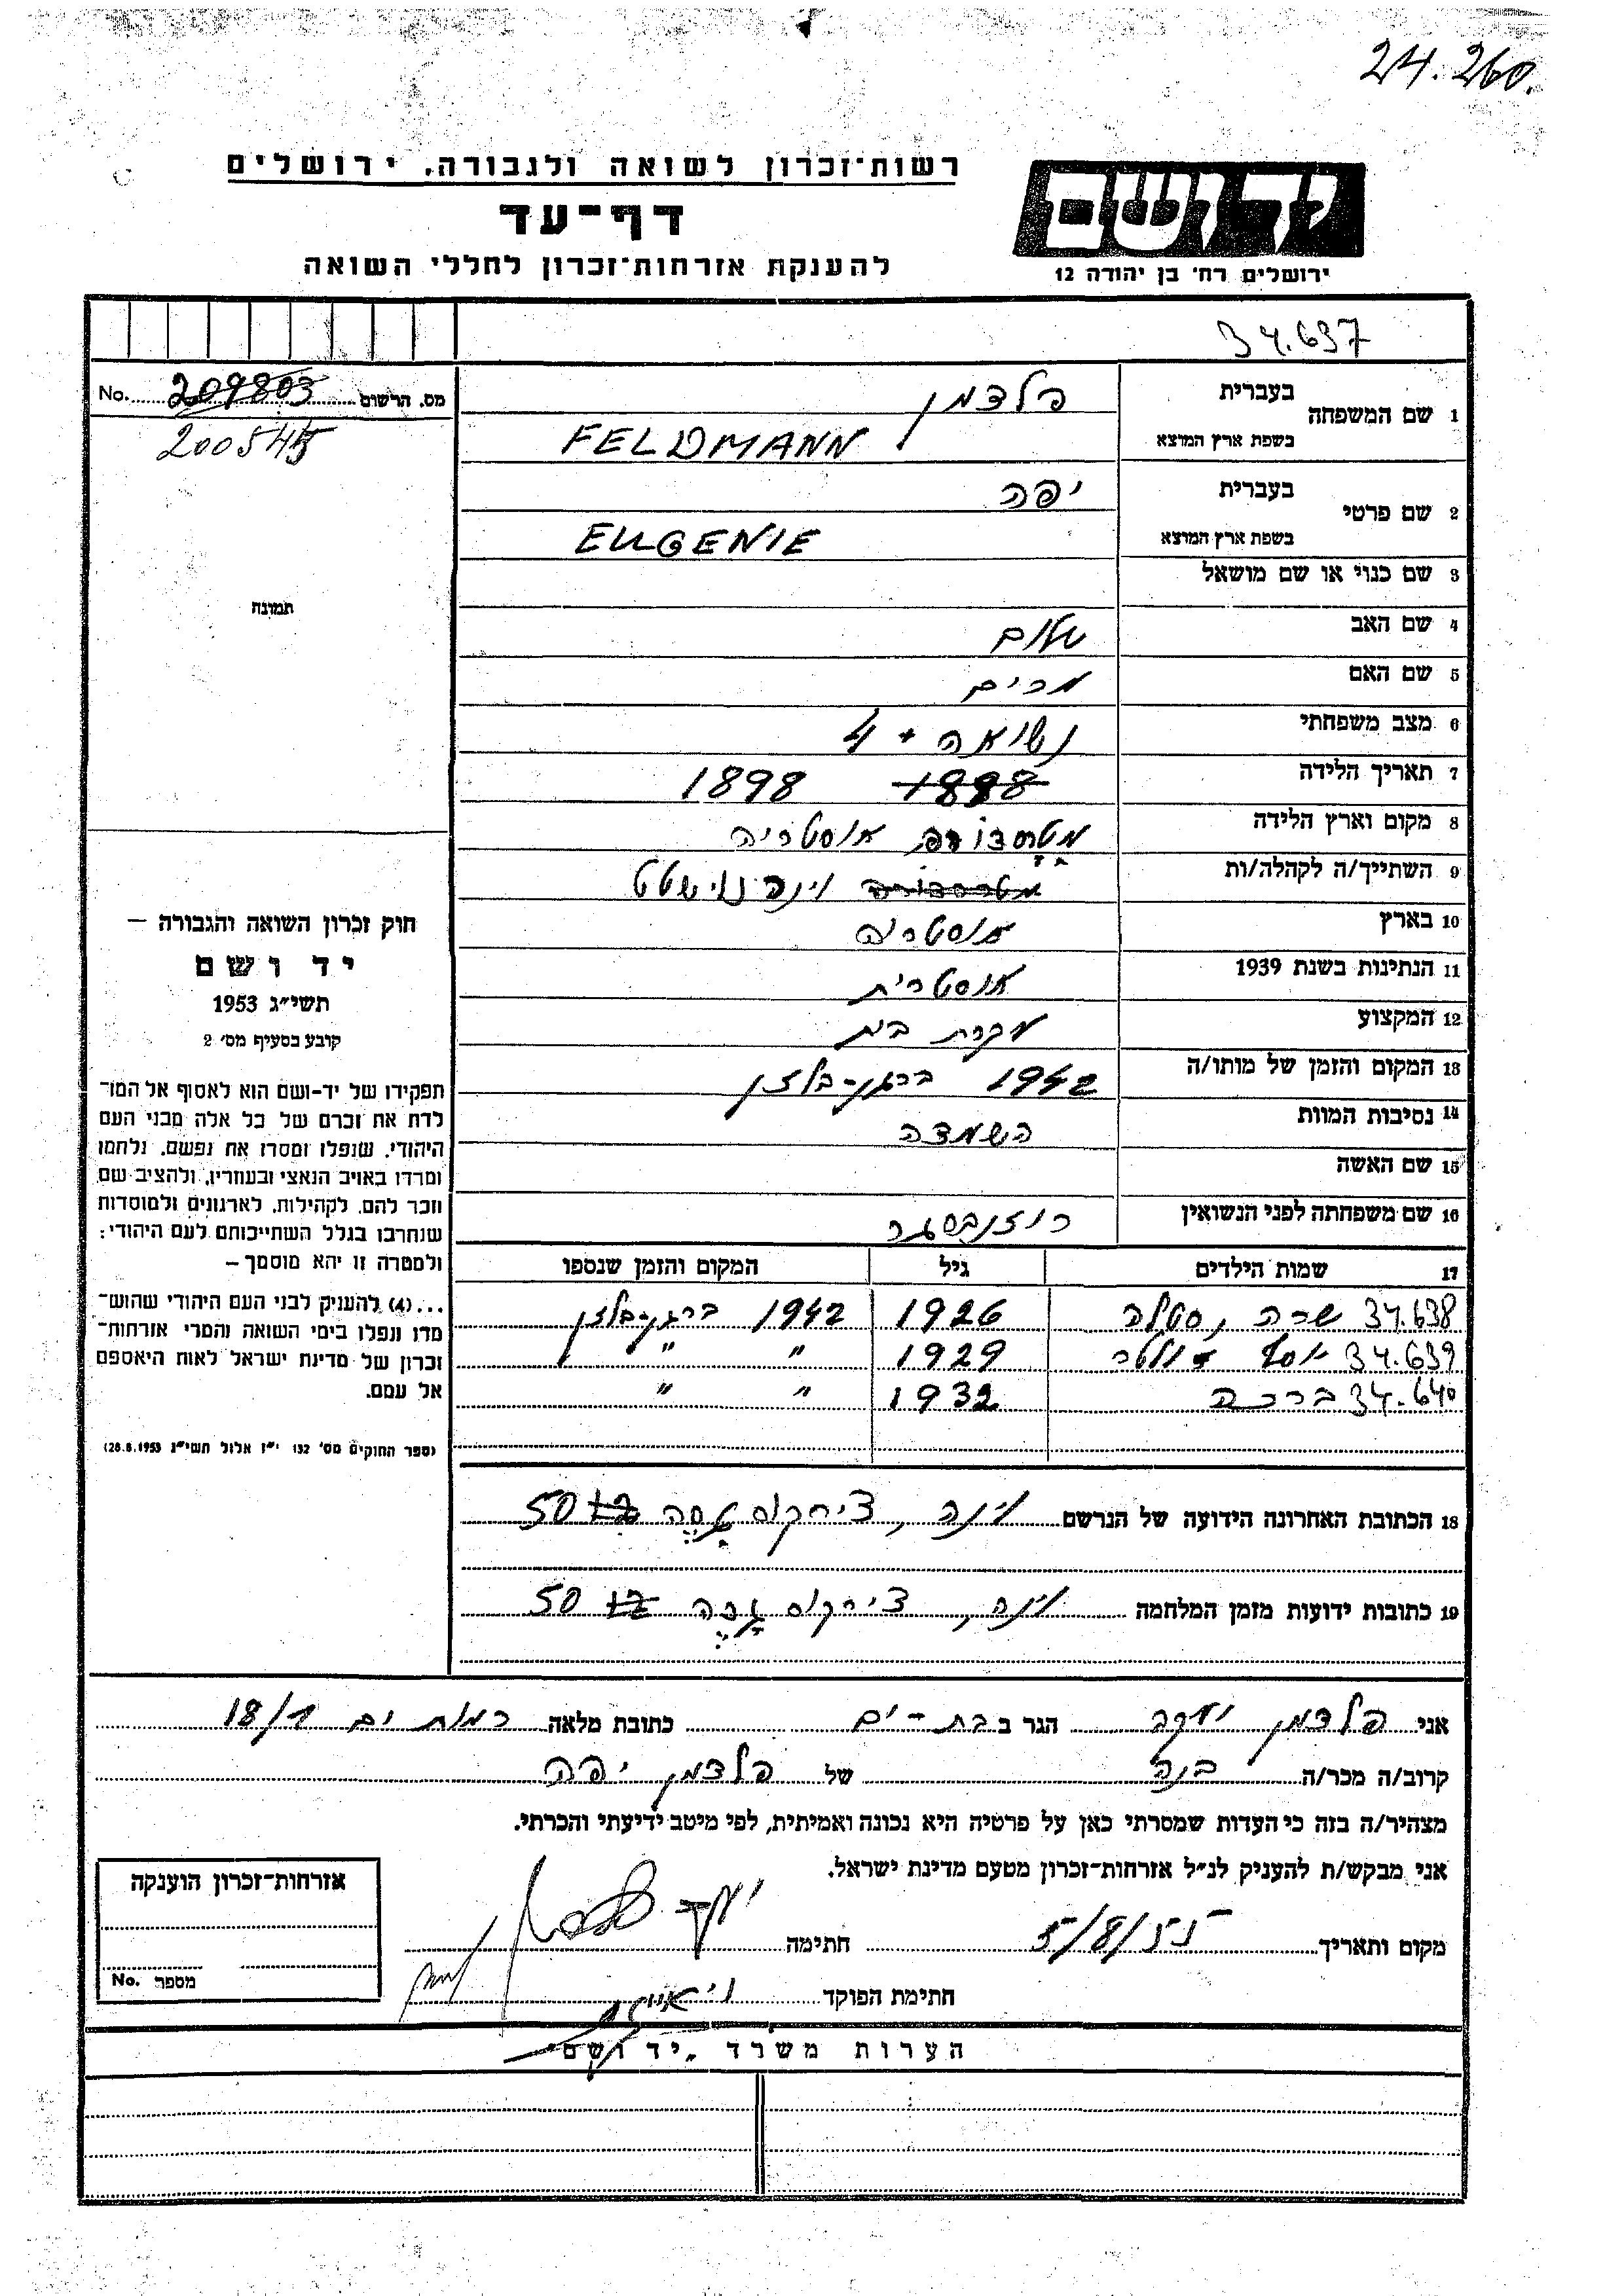 24.260.
רשות־זכרון לשואה ולגבורה, ירושלים
דף־עד
להענקת אזרחות־זכרון לחללי השואה
ידושם
ירושלים רח' בן יהודה 12
34.637
מס. הרשום 209803 No.
200545
תמונה
1 שם המשפחה
בעברית פלדמן
בשפת ארץ המוצא FELDMANN
2 שם פרטי
בעברית יפה
בשפת ארץ המוצא EUGENIE
3 שם כנוי או שם מושאל
4 שם האב שלום
5 שם האם מרים
6 מצב משפחתי נשואה + 4
7 תאריך הלידה 1888 1898
8 מקום וארץ הלידה מטרסדורף אוסטריה
9 השתייך/ה לקהלה/ות מטרסדורף וינר נוישטט
10 בארץ אוסטריה
11 הנתינות בשנת 1939 אוסטרית
12 המקצוע עקרת בית
13 המקום והזמן של מותו/ה 1942 ברגן-בלזן
14 נסיבות המוות השמדה
15 שם האשה
16 שם משפחתה לפני הנשואין רוזנברגר
17 שמות הילדים גיל המקום והזמן שנספו
34.638 שרה, סטלה 1926 1942 ברגן-בלזן
34.639 יוסף וולטר 1929 " "
34.640 ברכה 1932 " "
חוק זכרון השואה והגבורה —
יד ושם
תשי״ג 1953
קובע בסעיף מס' 2
תפקידו של יד-ושם הוא לאסוף אל המו־
לדת את זכרם של כל אלה מבני העם
היהודי, שנפלו ומסרו את נפשם, נלחמו
ומרדו באויב הנאצי ובעוזריו, ולהציב שם
וזכר להם, לקהילות, לארגונים ולמוסדות
שנחרבו בגלל השתייכותם לעם היהודי;
ולמטרה זו יהא מוסמך —
...(4) להעניק לבני העם היהודי שהוש־
מדו ונפלו בימי השואה והמרי אזרחות־
זכרון של מדינת ישראל לאות היאספם
אל עמם.
(ספר החוקים מס' 132 י״ז אלול תשי״ג 28.8.1953)
18 הכתובת האחרונה הידועה של הנרשם וינה, צירקוס גסה 50
19 כתובות ידועות מזמן המלחמה וינה, צירקוס גסה 50
אני פלדמן יעקב הגר ב בת-ים כתובת מלאה רמת ים 18/1
קרוב/ה מכר/ה בנה של פלדמן יפה
מצהיר/ה בזה כי העדות שמסרתי כאן על פרטיה היא נכונה ואמיתית, לפי מיטב ידיעתי והכרתי.
אני מבקש/ת להעניק לנ״ל אזרחות־זכרון מטעם מדינת ישראל.
מקום ותאריך 5/8/55 חתימה יעקב פלדמן
חתימת הפוקד
אזרחות־זכרון הוענקה
מספר No.
הערות משרד „יד ושם"